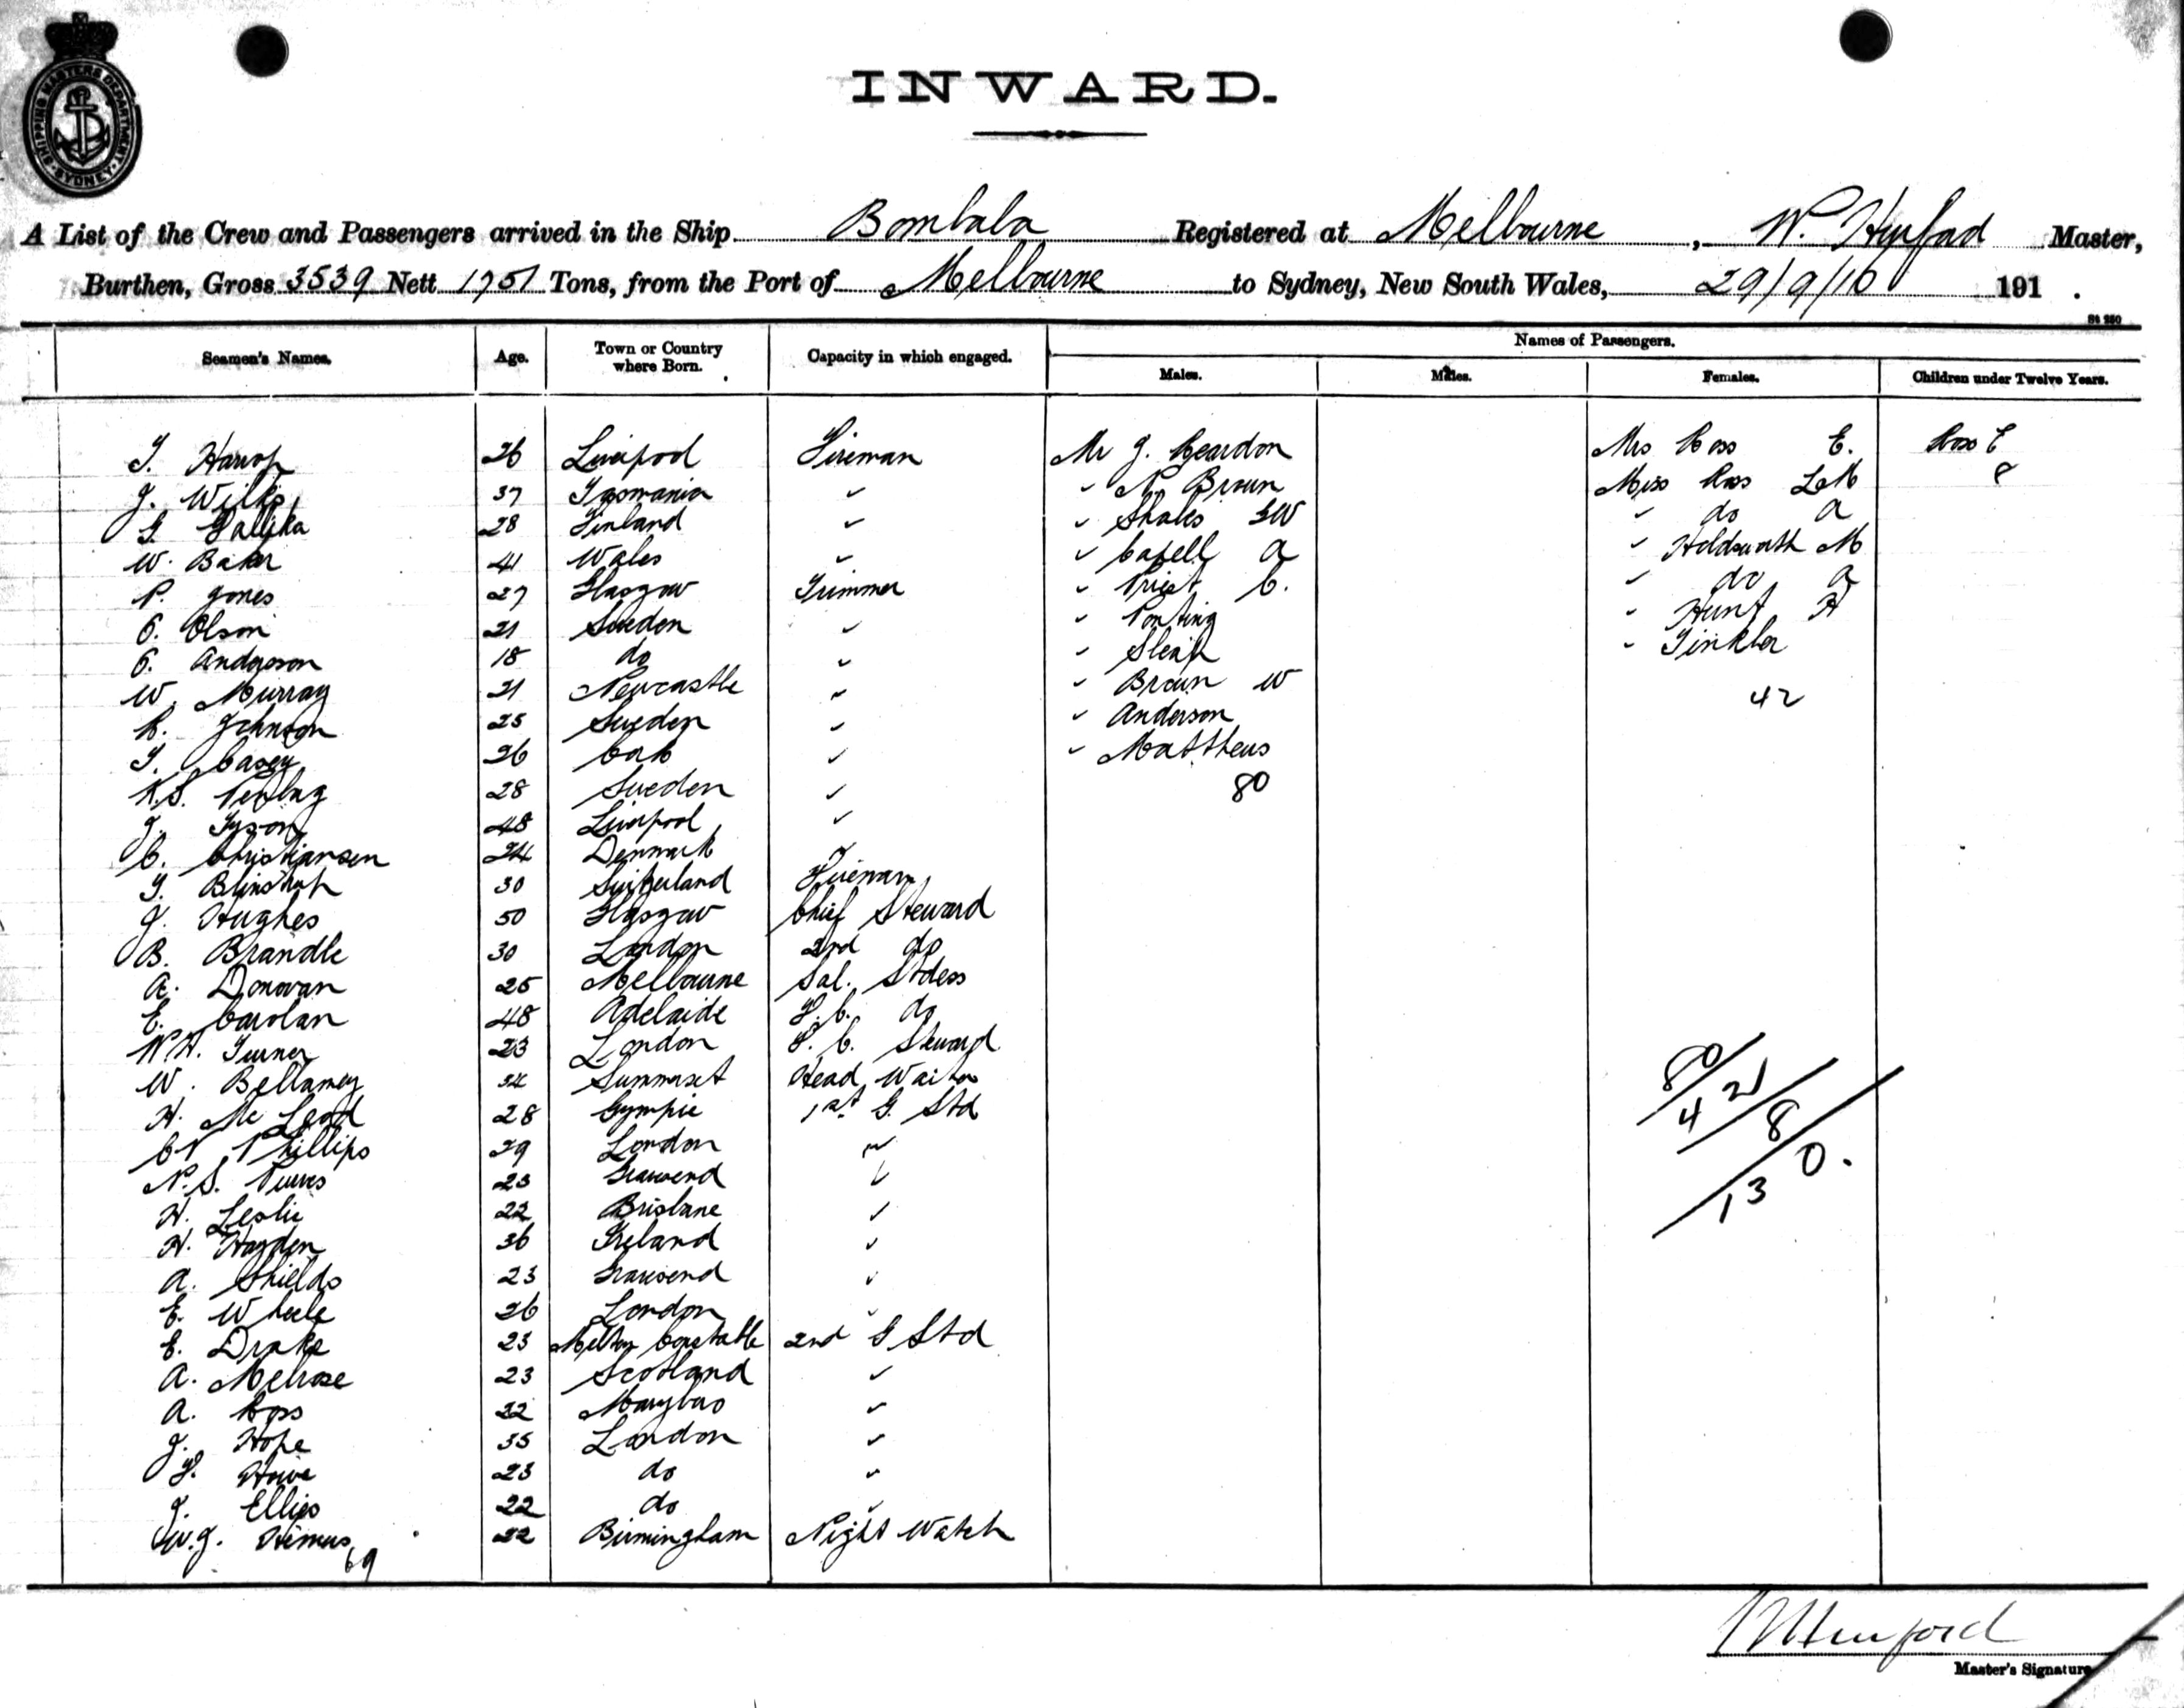 SHIPPING MASTERS DEPARTMENT SYDNEY
INWARD.
A List of the Crew and Passengers arrived in the Ship Bombala Registered at Melbourne, W. Hurford Master,
Burthen, Gross 3539 Nett 1751 Tons, from the Port of Melbourne to Sydney, New South Wales, 29/9/10 191 .
St 250
Seamen's Names. Age. Town or Country where Born. Capacity in which engaged. Names of Passengers.
Males. Males. Females. Children under Twelve Years.
T. Harrop 26 Liverpool Fireman Mr J. Reardon Mrs Ross E. Ross E
J. Wilks 37 Tasmania " " N. Brown Miss Ross L M 8
28 Finland " " Shales G W " do a
W. Baker 41 Wales " " Capell a " Holdsworth M
P. Jones 27 Glasgow Trimmer " Priest C. " do a
O. Olson 21 Sweden " " Ponting " Hunt H
O. Anderson 18 do " " Sleap " Tinkler
W. Murray 21 Newcastle " " Brown W 42
R. Johnson 25 Sweden " " Anderson
T. Casey 26 Cork " " Matthews
K.S. 28 Sweden " 80
J. Tyson 48 Liverpool "
C. Christiansen 24 Denmark "
T. 30 Switzerland Fireman
J. Hughes 50 Glasgow Chief Steward
B. Brandle 30 London 2nd do
A. Donovan 25 Melbourne Sal. Stdess
E. Carolan 48 Adelaide F.C. do
W.H. Turner 23 London F.C. Steward
W. Bellamey 34 Summerset Head Waiter
H. Mc Leod 28 Gympie 1st G. Std
C P Phillips 29 London "
N.S. Purves 23 Gravesend "
H. Leslie 22 Brisbane "
H. Hayden 36 Ireland "
A. Shields 23 Gravesend "
E. Wheele 26 London "
E. Drake 23 Melton Constable 2nd G Std
A. Melrose 23 Scotland "
A. Ross 22 Marybro "
J. Hope 35 London "
F. Howe 23 do "
J. Ellis 22 do "
W.J. Hemus 22 Birmingham Night Watch
69
80/
42/
8/
130.
W Hurford
Master's Signature